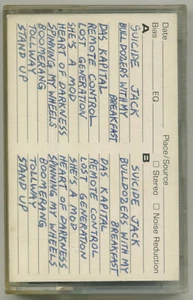 Date
Place/Source
Bias
EQ
Stereo
Noise Reduction
A
SUICIDE JACK
BULLDOZERS WITH MY
BREAKFAST
DAS KAPITAL
REMOTE CONTROL
LOST GENERATION
SHE'S A MOD
HEART OF DARKNESS
SPINNING MY WHEELS
BOOMERANG
TOLLWAY
STAND UP
B
SUICIDE JACK
BULLDOZERS WITH MY
BREAKFAST
DAS KAPITAL
REMOTE CONTROL
LOST GENERATION
SHE'S A MOD
HEART OF DARKNESS
SPINNING MY WHEELS
BOOMERANG
TOLLWAY
STAND UP